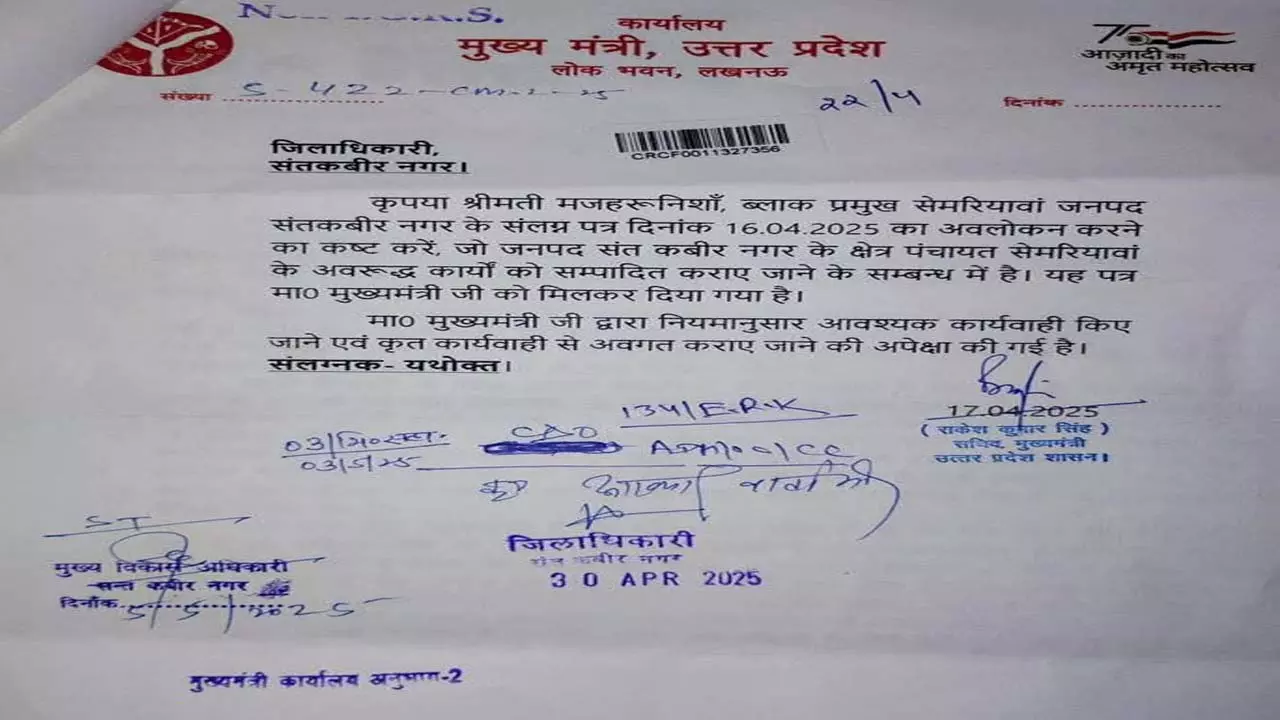 कार्यालय
मुख्य मंत्री, उत्तर प्रदेश
लोक भवन, लखनऊ
75
आज़ादी का
अमृत महोत्सव
संख्या S-422-CM-2-25
२२/4
दिनांक
CRCF0011327356
जिलाधिकारी,
संतकबीर नगर।
कृपया श्रीमती मजहरूनिशाँ, ब्लाक प्रमुख सेमरियावां जनपद
संतकबीर नगर के संलग्न पत्र दिनांक 16.04.2025 का अवलोकन करने
का कष्ट करें, जो जनपद संत कबीर नगर के क्षेत्र पंचायत सेमरियावां
के अवरूद्ध कार्यों को सम्पादित कराए जाने के सम्बन्ध में है। यह पत्र
मा0 मुख्यमंत्री जी को मिलकर दिया गया है।
मा0 मुख्यमंत्री जी द्वारा नियमानुसार आवश्यक कार्यवाही किए
जाने एवं कृत कार्यवाही से अवगत कराए जाने की अपेक्षा की गई है।
संलग्नक- यथोक्त।
17.04.2025
( राकेश कुमार सिंह )
सचिव, मुख्यमंत्री
उत्तर प्रदेश शासन।
134/E.R.K
03/5/25
जिलाधिकारी
संत कबीर नगर
30 APR 2025
ST
मुख्य विकास अधिकारी
सन्त कबीर नगर
दिनाँक 5/5/2025
मुख्यमंत्री कार्यालय अनुभाग-2